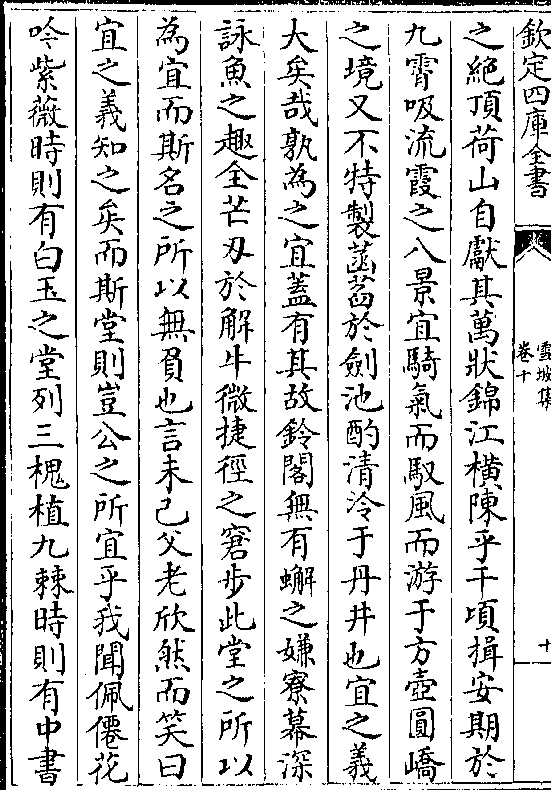 欽定四庫全書
雪坡集
卷十
十
之絶頂荷山自獻其萬狀錦江橫陳乎千頃揖安期於
九霄吸流霞之八景宜騎氣而馭風而游于方壺圓嶠
之境又不特製菡萏於劍池酌清泠于丹井也宜之義
大矣哉孰為之宜蓋有其故鈴閣無有蠏之嫌寮幕深
詠魚之趣全芒刃於解牛微捷徑之窘步此堂之所以
為宜而斯名之所以無負也言未已父老欣然而笑曰
宜之義知之矣而斯堂則豈公之所宜乎我聞佩僊花
吟紫薇時則有白玉之堂列三槐植九棘時則有中書